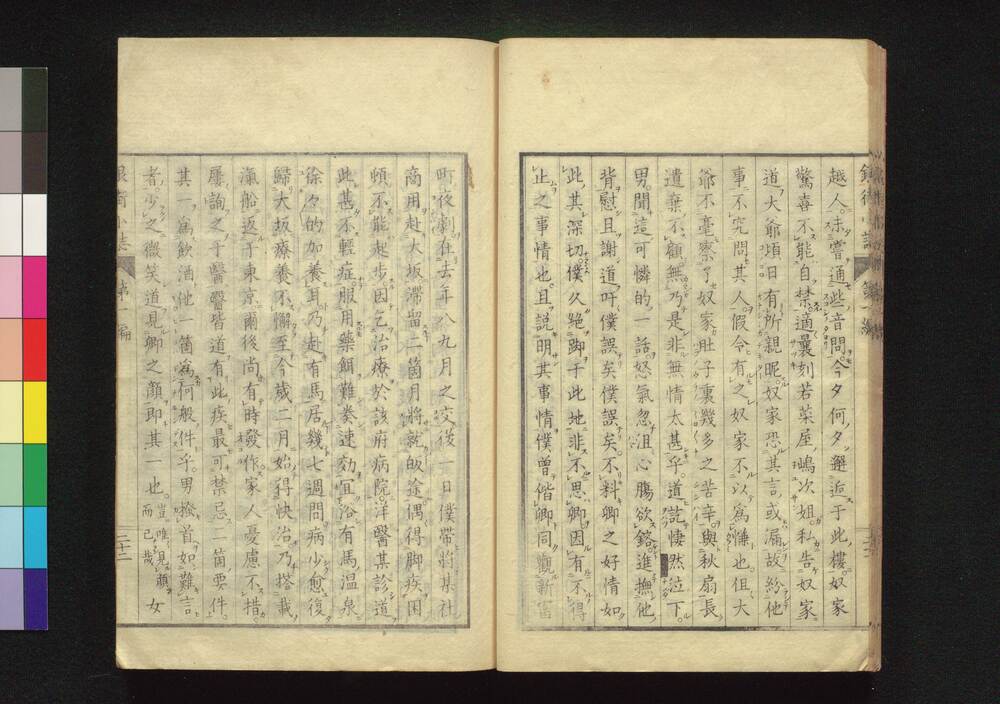 越人。未嘗通些音問。今夕何夕邂逅于此樓。奴家
驚喜不能自禁。適曩刻若菜屋嶋次姐。私告奴家
道。大爺頃日有所親昵。奴家恐其言或漏故紛他
事不究問其人。假令有之奴家不以為慊也。但大
爺不毫察了奴家肚子裏幾多之苦辛。與秋扇長
遺棄不顧。無乃是非無情太甚乎。道訖悽然泣下。
男聞這可憐的一話。怒氣忽沮。心腸欲鎔。進撫他
背慰且謝道。吁僕誤矣僕誤矣。不料卿之好情如
此其深切。僕久絶跡于此地。非不思卿。因有不得
止之事情也。且説明其事情。僕曾偕卿同觀新富
町夜劇。在去年八九月之交。後一日僕帶將某社
商用赴大坂。滯留二箇月。將就皈途。偶得脚疾困
頓不能起步。因乞治療於該府病院。洋醫某診道
此甚不輕症。服用藥餌難奏速効。宜浴有馬温泉
徐々的加養耳。乃赴有馬居幾七週間。病少愈復
歸大坂療養不懈。至今歳二月始得快治。乃搭載
滊船返于東京。爾後尚有時發作。家人憂慮不措。
屢詢之于醫。醫皆道有此疾最可禁忌一箇要件。
其一為飲酒。他一箇為何般件乎。男撿首如難言
者。少之微笑道見卿之顔即其一也。豈唯見顔而已哉 女
銀街小誌 第一編 二十二